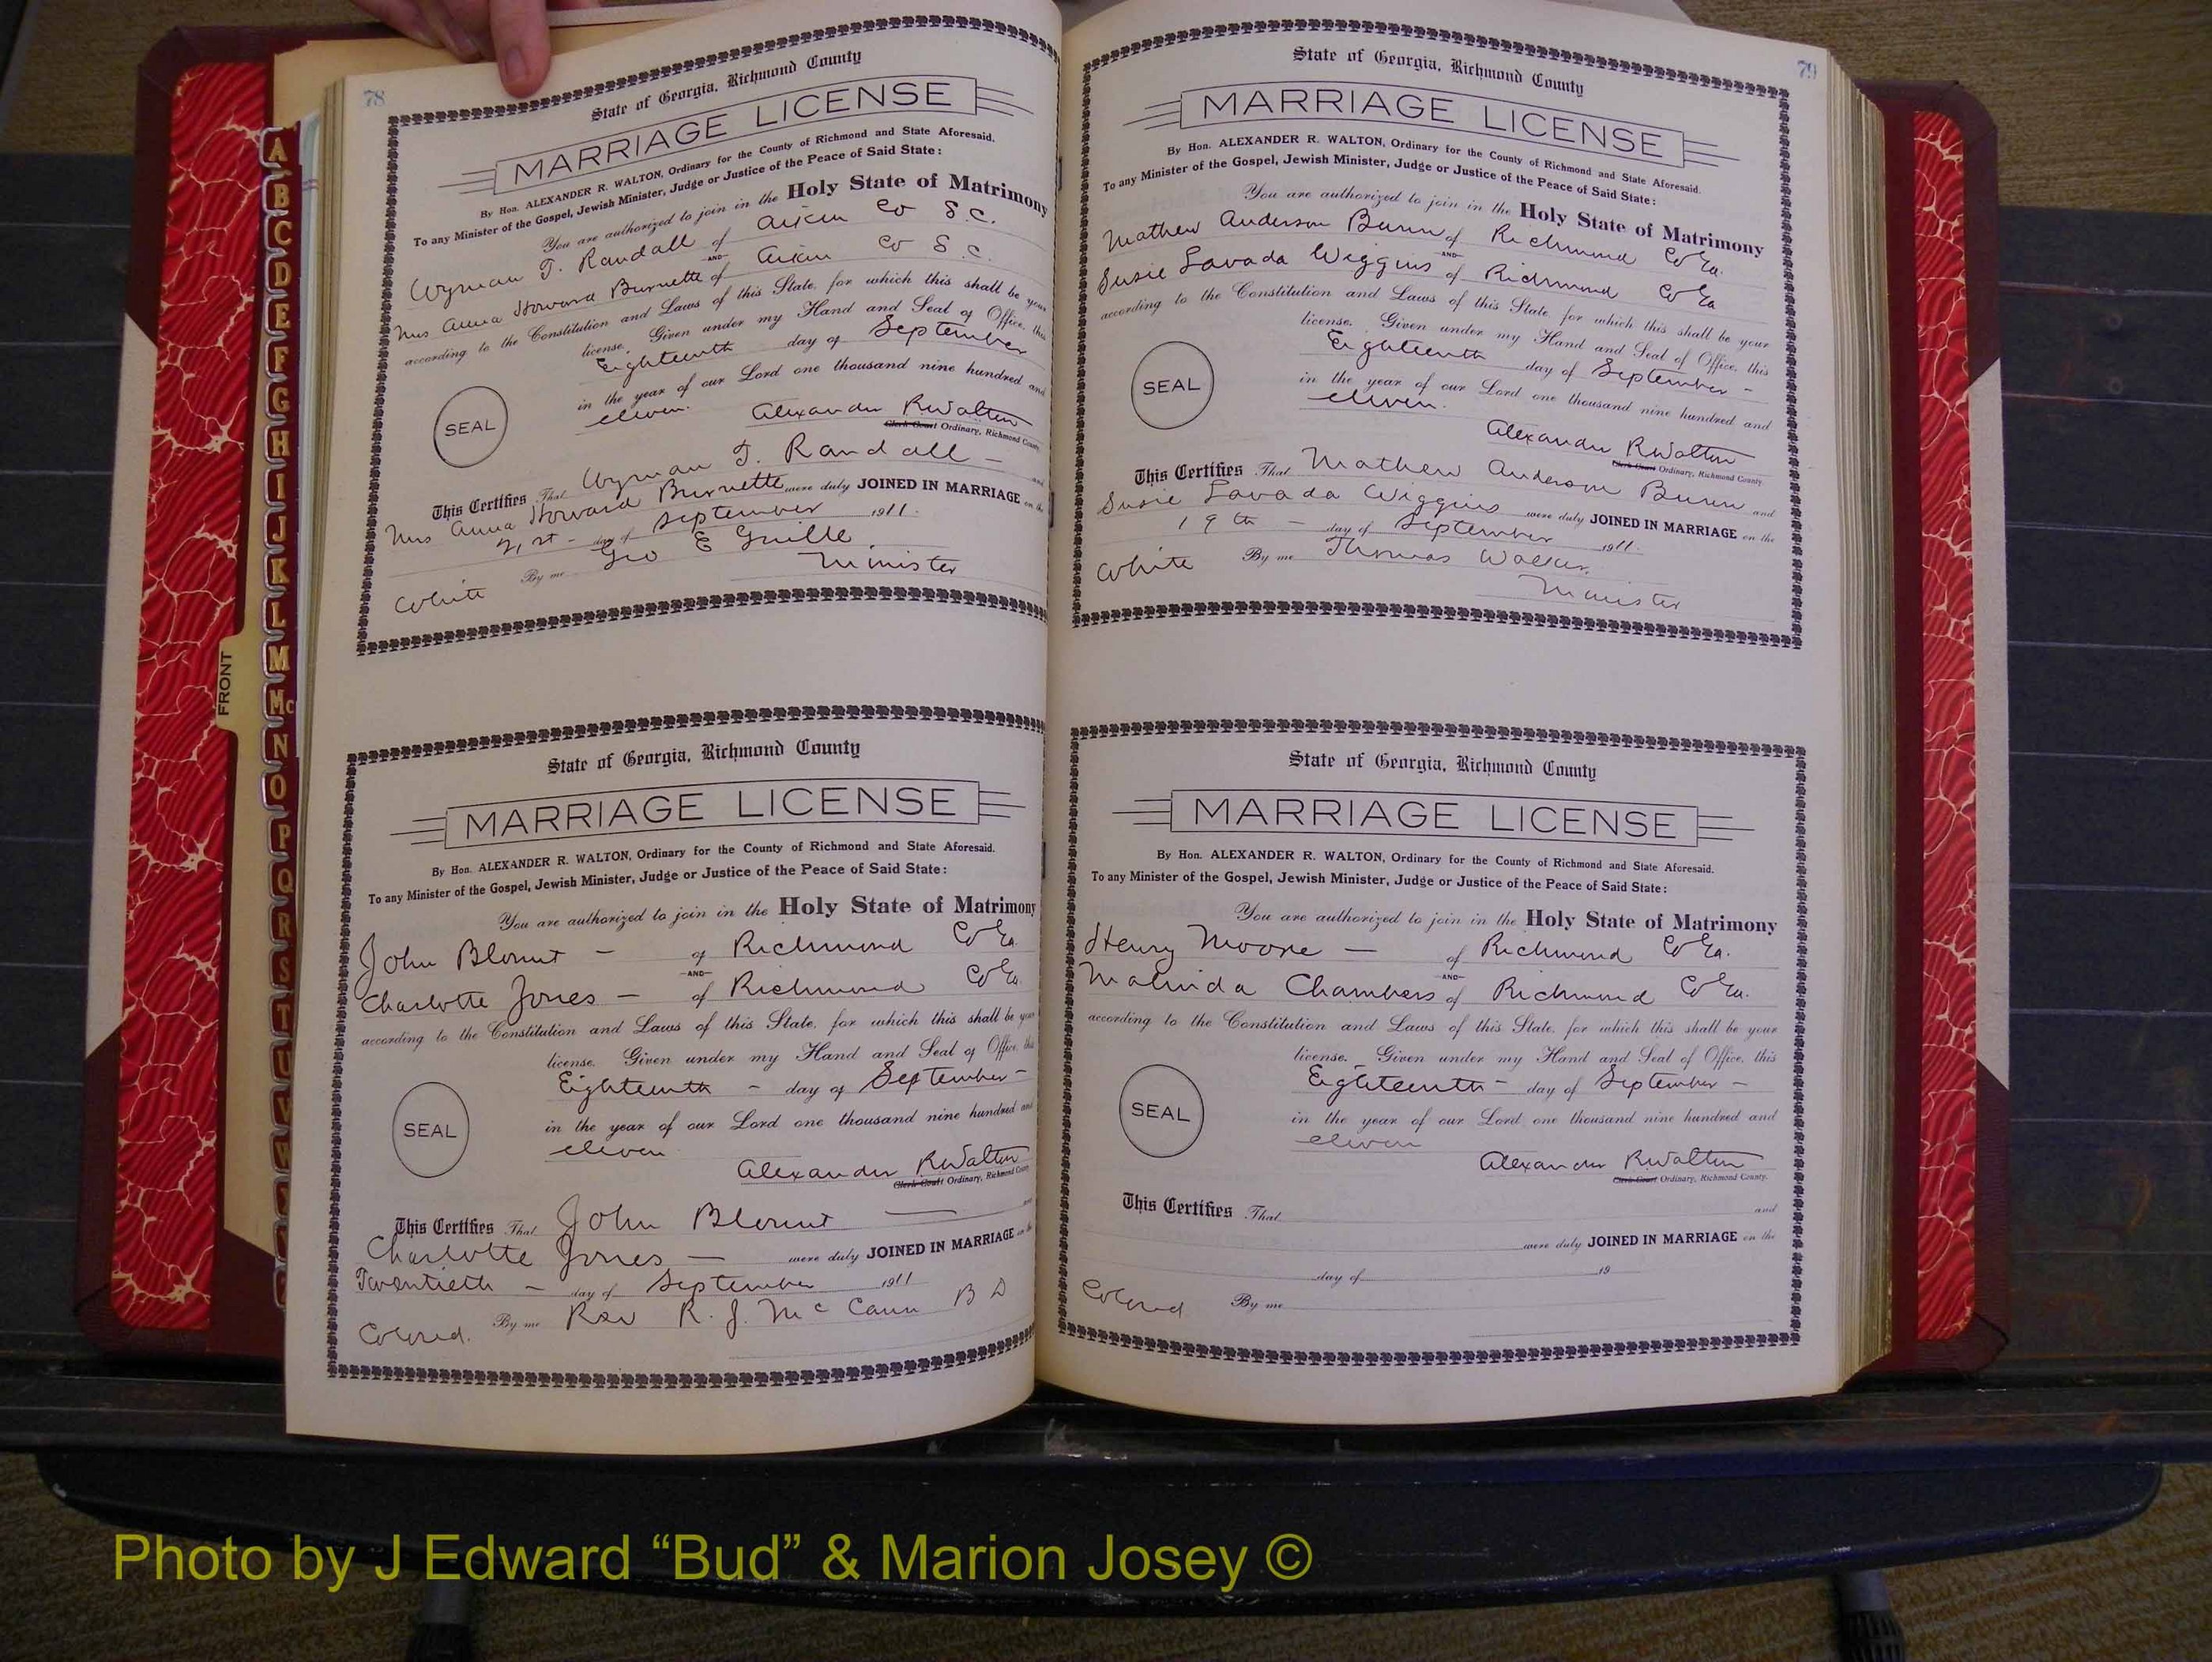 78
State of Georgia, Richmond County
MARRIAGE LICENSE
By Hon. ALEXANDER R. WALTON, Ordinary for the County of Richmond and State Aforesaid.
To any Minister of the Gospel, Jewish Minister, Judge or Justice of the Peace of Said State:
You are authorized to join in the Holy State of Matrimony
Wyman T. Randall of Aiken Co S.C.
AND
Mrs Anna Howard Burnette of Aiken Co S.C.
according to the Constitution and Laws of this State, for which this shall be your
license. Given under my Hand and Seal of Office, this
Eighteenth day of September
in the year of our Lord one thousand nine hundred and
eleven.
SEAL
Alexander R Walton
Clerk Court Ordinary, Richmond County
This Certifies That Wyman T. Randall – and
Mrs Anna Howard Burnette were duly JOINED IN MARRIAGE on the
21st – day of September 1911.
By me Geo E Guille
White Minister
State of Georgia, Richmond County
MARRIAGE LICENSE
By Hon. ALEXANDER R. WALTON, Ordinary for the County of Richmond and State Aforesaid.
To any Minister of the Gospel, Jewish Minister, Judge or Justice of the Peace of Said State:
You are authorized to join in the Holy State of Matrimony
John Blount – of Richmond Co Ga.
AND
Charlotte Jones – of Richmond Co Ga
according to the Constitution and Laws of this State, for which this shall be your
license. Given under my Hand and Seal of Office, this
Eighteenth – day of September –
in the year of our Lord one thousand nine hundred and
eleven
SEAL
Alexander R Walton
Clerk Court Ordinary, Richmond County
This Certifies That John Blount — and
Charlotte Jones – were duly JOINED IN MARRIAGE on the
Twentieth – day of September 1911
By me Rev R. J. McCann B D
Colored.
79
State of Georgia, Richmond County
MARRIAGE LICENSE
By Hon. ALEXANDER R. WALTON, Ordinary for the County of Richmond and State Aforesaid.
To any Minister of the Gospel, Jewish Minister, Judge or Justice of the Peace of Said State:
You are authorized to join in the Holy State of Matrimony
Mathew Anderson Bunn of Richmond Co Ga.
AND
Susie Lavada Wiggins of Richmond Co Ga
according to the Constitution and Laws of this State, for which this shall be your
license. Given under my Hand and Seal of Office, this
Eighteenth day of September –
in the year of our Lord one thousand nine hundred and
eleven.
SEAL
Alexander R Walton
Clerk Court Ordinary, Richmond County
This Certifies That Mathew Anderson Bunn and
Susie Lavada Wiggins were duly JOINED IN MARRIAGE on the
19th – day of September 1911.
White By me Thomas Walker.
Minister
State of Georgia, Richmond County
MARRIAGE LICENSE
By Hon. ALEXANDER R. WALTON, Ordinary for the County of Richmond and State Aforesaid.
To any Minister of the Gospel, Jewish Minister, Judge or Justice of the Peace of Said State:
You are authorized to join in the Holy State of Matrimony
Henry Moore – of Richmond Co Ga.
AND
Malinda Chambers of Richmond Co Ga.
according to the Constitution and Laws of this State, for which this shall be your
license. Given under my Hand and Seal of Office, this
Eighteenth – day of September –
in the year of our Lord one thousand nine hundred and
eleven
SEAL
Alexander R. Walton
Clerk Court Ordinary, Richmond County.
This Certifies That and
were duly JOINED IN MARRIAGE on the
day of 19
Colored By me
FRONT
A
B
C
D
E
F
G
H
I
J
K
L
M
Mc
N
O
P
Q
R
S
T
U
V
W
Photo by J Edward “Bud” & Marion Josey ©